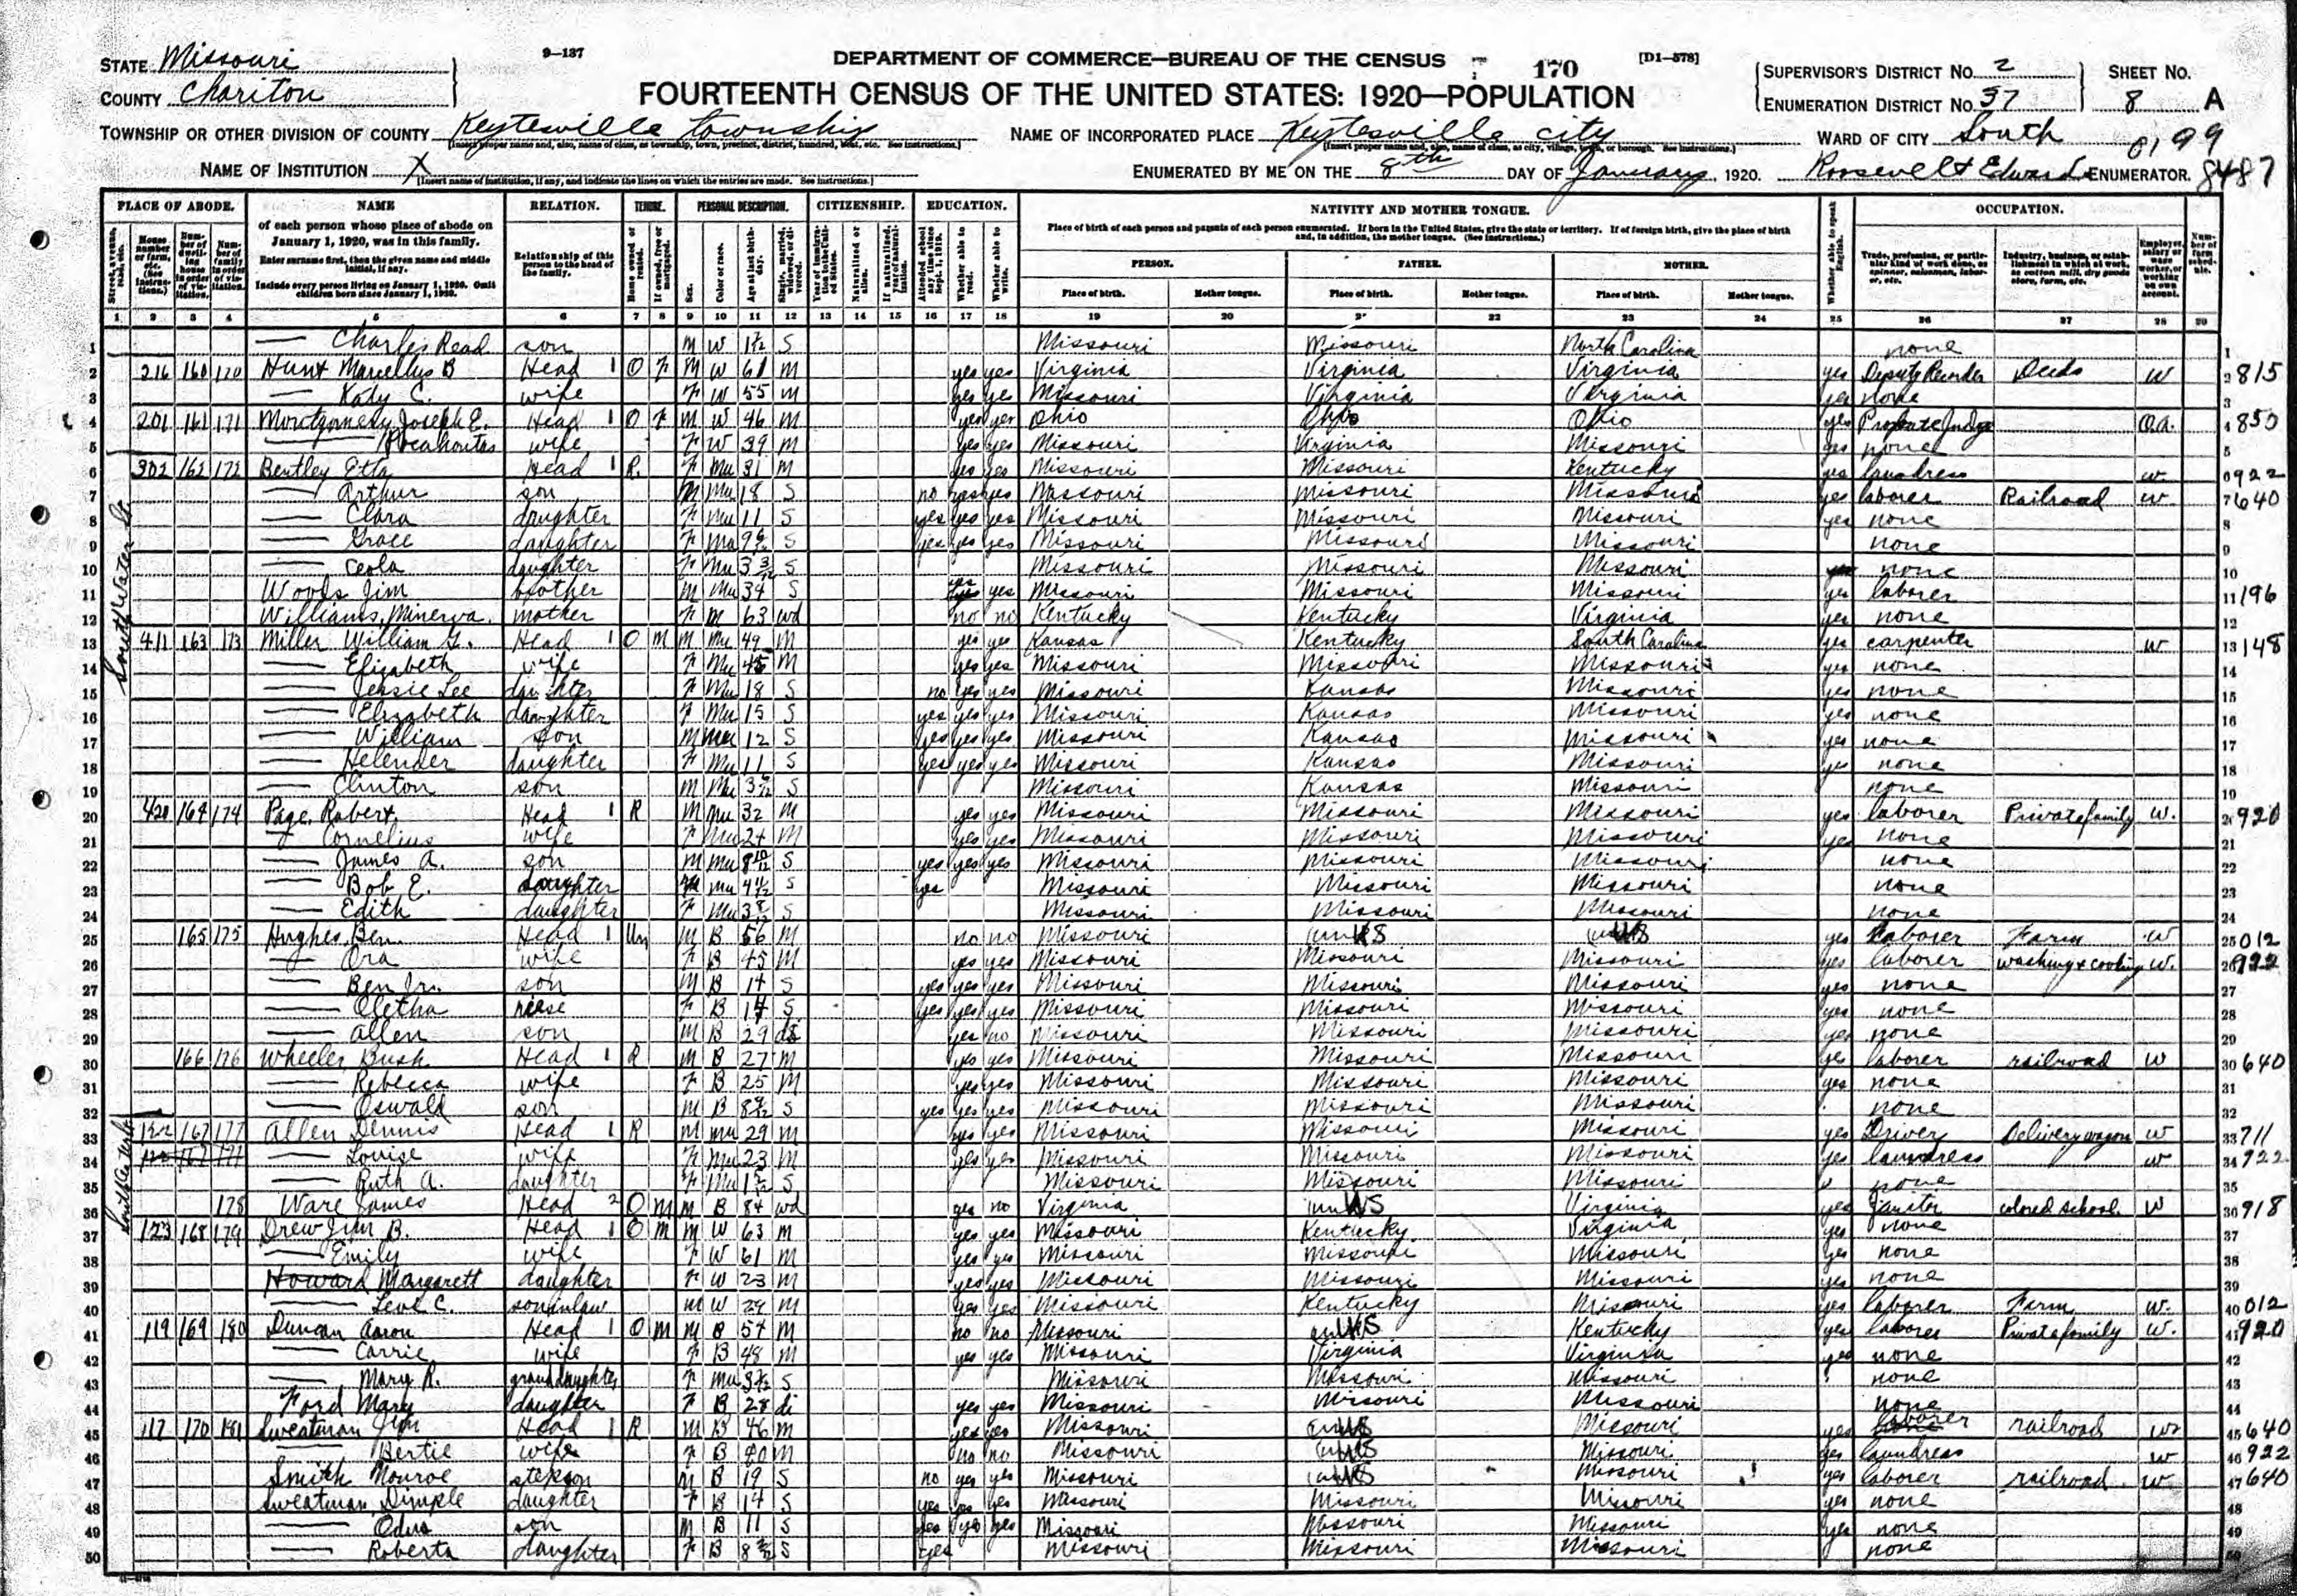 9—137
DEPARTMENT OF COMMERCE—BUREAU OF THE CENSUS
170
[D1—578]
STATE Missouri
COUNTY Chariton
FOURTEENTH CENSUS OF THE UNITED STATES: 1920—POPULATION
SUPERVISOR'S DISTRICT No. 2
ENUMERATION DISTRICT No. 37
SHEET No.
8 A
TOWNSHIP OR OTHER DIVISION OF COUNTY Keytesville township
NAME OF INCORPORATED PLACE Keytesville city
WARD OF CITY South
0199
NAME OF INSTITUTION X
ENUMERATED BY ME ON THE 8th DAY OF January, 1920. Roosevelt Edwards ENUMERATOR. 8487
PLACE OF ABODE. NAME RELATION. TENURE. PERSONAL DESCRIPTION. CITIZENSHIP. EDUCATION. NATIVITY AND MOTHER TONGUE. OCCUPATION.
of each person whose place of abode on January 1, 1920, was in this family.
Enter surname first, then the given name and middle initial, if any.
Include every person living on January 1, 1920. Omit children born since January 1, 1920.
Relationship of this person to the head of the family.
Place of birth of each person and parents of each person enumerated. If born in the United States, give the state or territory. If of foreign birth, give the place of birth and, in addition, the mother tongue. (See Instructions.)
PERSON. FATHER. MOTHER.
Place of birth. Mother tongue. Place of birth. Mother tongue. Place of birth. Mother tongue.
1 2 3 4 5 6 7 8 9 10 11 12 13 14 15 16 17 18 19 20 21 22 23 24 25 26 27 28 29
1 — Charles Read son M W S Missouri Missouri North Carolina none 1
2 216 160 170 Hunt Marcellus B Head 1 O F M W 61 M yes yes Virginia Virginia Virginia yes Deputy Recorder Deeds W 2 815
3 — Katy C. wife F W 55 M yes yes Missouri Virginia Virginia yes none 3
4 201 161 171 Montgomery Joseph E. Head 1 O F M W 46 M yes yes Ohio Ohio Ohio yes Probate Judge O.A. 4 850
5 — Pocahontas wife F W 39 M yes yes Missouri Virginia Missouri yes none 5
6 302 162 172 Bentley Etta Head 1 R. F Mu 31 M yes yes Missouri Missouri Kentucky yes laundress W 6 922
7 — Arthur son M Mu 18 S no yes yes Missouri Missouri Missouri yes laborer Railroad W 7 640
8 — Clara daughter F Mu 11 S yes yes yes Missouri Missouri Missouri yes none 8
9 — Grace daughter F Mu S yes yes yes Missouri Missouri Missouri none 9
10 — Ceola daughter F Mu 3 3/12 S Missouri Missouri Missouri none 10
11 Woods Jim brother M Mu 34 S yes yes Missouri Missouri Missouri yes laborer 11 196
12 Williams, Minerva. mother F M 63 wd no no Kentucky Kentucky Virginia yes none 12
13 411 163 173 Miller William Head 1 O M M Mu 49 M yes yes Kansas Kentucky South Carolina yes carpenter W 13 148
14 — Elizabeth wife F Mu 45 M yes yes Missouri Missouri Missouri yes none 14
15 — Jessie Lee daughter F Mu 18 S no yes yes Missouri Kansas Missouri yes none 15
16 — Elizabeth daughter F Mu 15 S yes yes yes Missouri Kansas Missouri yes none 16
17 — William son M Mu 12 S yes yes yes Missouri Kansas Missouri yes none 17
18 — Helender daughter F Mu 11 S yes yes yes Missouri Kansas Missouri yes none 18
19 — Clinton son M Mu S Missouri Kansas Missouri none 19
20 420 164 174 Page, Robert Head 1 R M Mu 32 M yes yes Missouri Missouri Missouri yes laborer Private family W. 20 920
21 — Cornelius wife F Mu 24 M yes yes Missouri Missouri Missouri yes none 21
22 — James A. son M Mu 8 10/12 S yes yes yes Missouri Missouri Missouri none 22
23 — Bob E. daughter Mu S yes Missouri Missouri Missouri none 23
24 — Edith daughter F Mu S Missouri Missouri Missouri none 24
25 165 175 Hughes, Ben Head 1 Un M B 56 M no no Missouri US US yes laborer Farm W 25 012
26 — Ora wife F B 45 M yes yes Missouri Missouri Missouri yes laborer washing & cooking W. 26 922
27 — Ben Jr. son M B 14 S yes yes yes Missouri Missouri Missouri yes none 27
28 — Cletha niese F B 14 S yes yes yes Missouri Missouri Missouri yes none 28
29 — Allen son M B 29 di yes no Missouri Missouri Missouri yes none 29
30 166 176 Wheeler, Bush Head 1 R M B 27 M yes yes Missouri Missouri Missouri yes laborer railroad W 30 640
31 — Rebecca wife F B 25 M yes yes Missouri Missouri Missouri yes none 31
32 — Oswald son M B S yes yes yes Missouri Missouri Missouri none 32
33 122 167 177 Allen Dennis Head 1 R M Mu 29 M yes yes Missouri Missouri Missouri yes Driver Delivery wagon W 33 711
34 — Louise wife F Mu 23 M yes yes Missouri Missouri Missouri yes laundress W 34 922
35 — Ruth A. daughter F Mu S Missouri Missouri Missouri none 35
36 178 Ware James Head 2 O M M B 84 wd yes no Virginia US Virginia yes Janitor colored school. W 36 918
37 123 168 179 Drew Jim B. Head 1 O M M W 63 M yes yes Missouri Kentucky Virginia yes none 37
38 — Emily wife F W 61 M yes yes Missouri Missouri Missouri yes none 38
39 Howard Margarett daughter F W 23 M yes yes Missouri Missouri Missouri yes none 39
40 — C. soninlaw M W 29 M yes yes Missouri Kentucky Missouri yes laborer Farm W. 40 012
41 119 169 180 Duncan Aaron Head 1 O M M B 54 M no no Missouri US Kentucky yes laborer Private family W. 41 920
42 — Carrie wife F B 48 M yes yes Missouri Virginia Virginia yes none 42
43 — Mary R. granddaughter F Mu S Missouri Missouri Missouri none 43
44 Ford Mary daughter F B 28 di yes yes Missouri Missouri Missouri none 44
45 117 170 181 Sweatman Jim Head 1 R M B 46 M yes yes Missouri US Missouri yes laborer railroad W 45 640
46 — Bertie wife F B 40 M no no Missouri US Missouri yes laundress W 46 922
47 Smith Monroe stepson M B 19 S no yes yes Missouri US Missouri yes laborer railroad W 47 640
48 Sweatman Dimple daughter F B 14 S yes yes yes Missouri Missouri Missouri yes none 48
49 — son M B 11 S yes yes yes Missouri Missouri Missouri yes none 49
50 — Roberta daughter F B S yes Missouri Missouri Missouri none 50
South Water St.